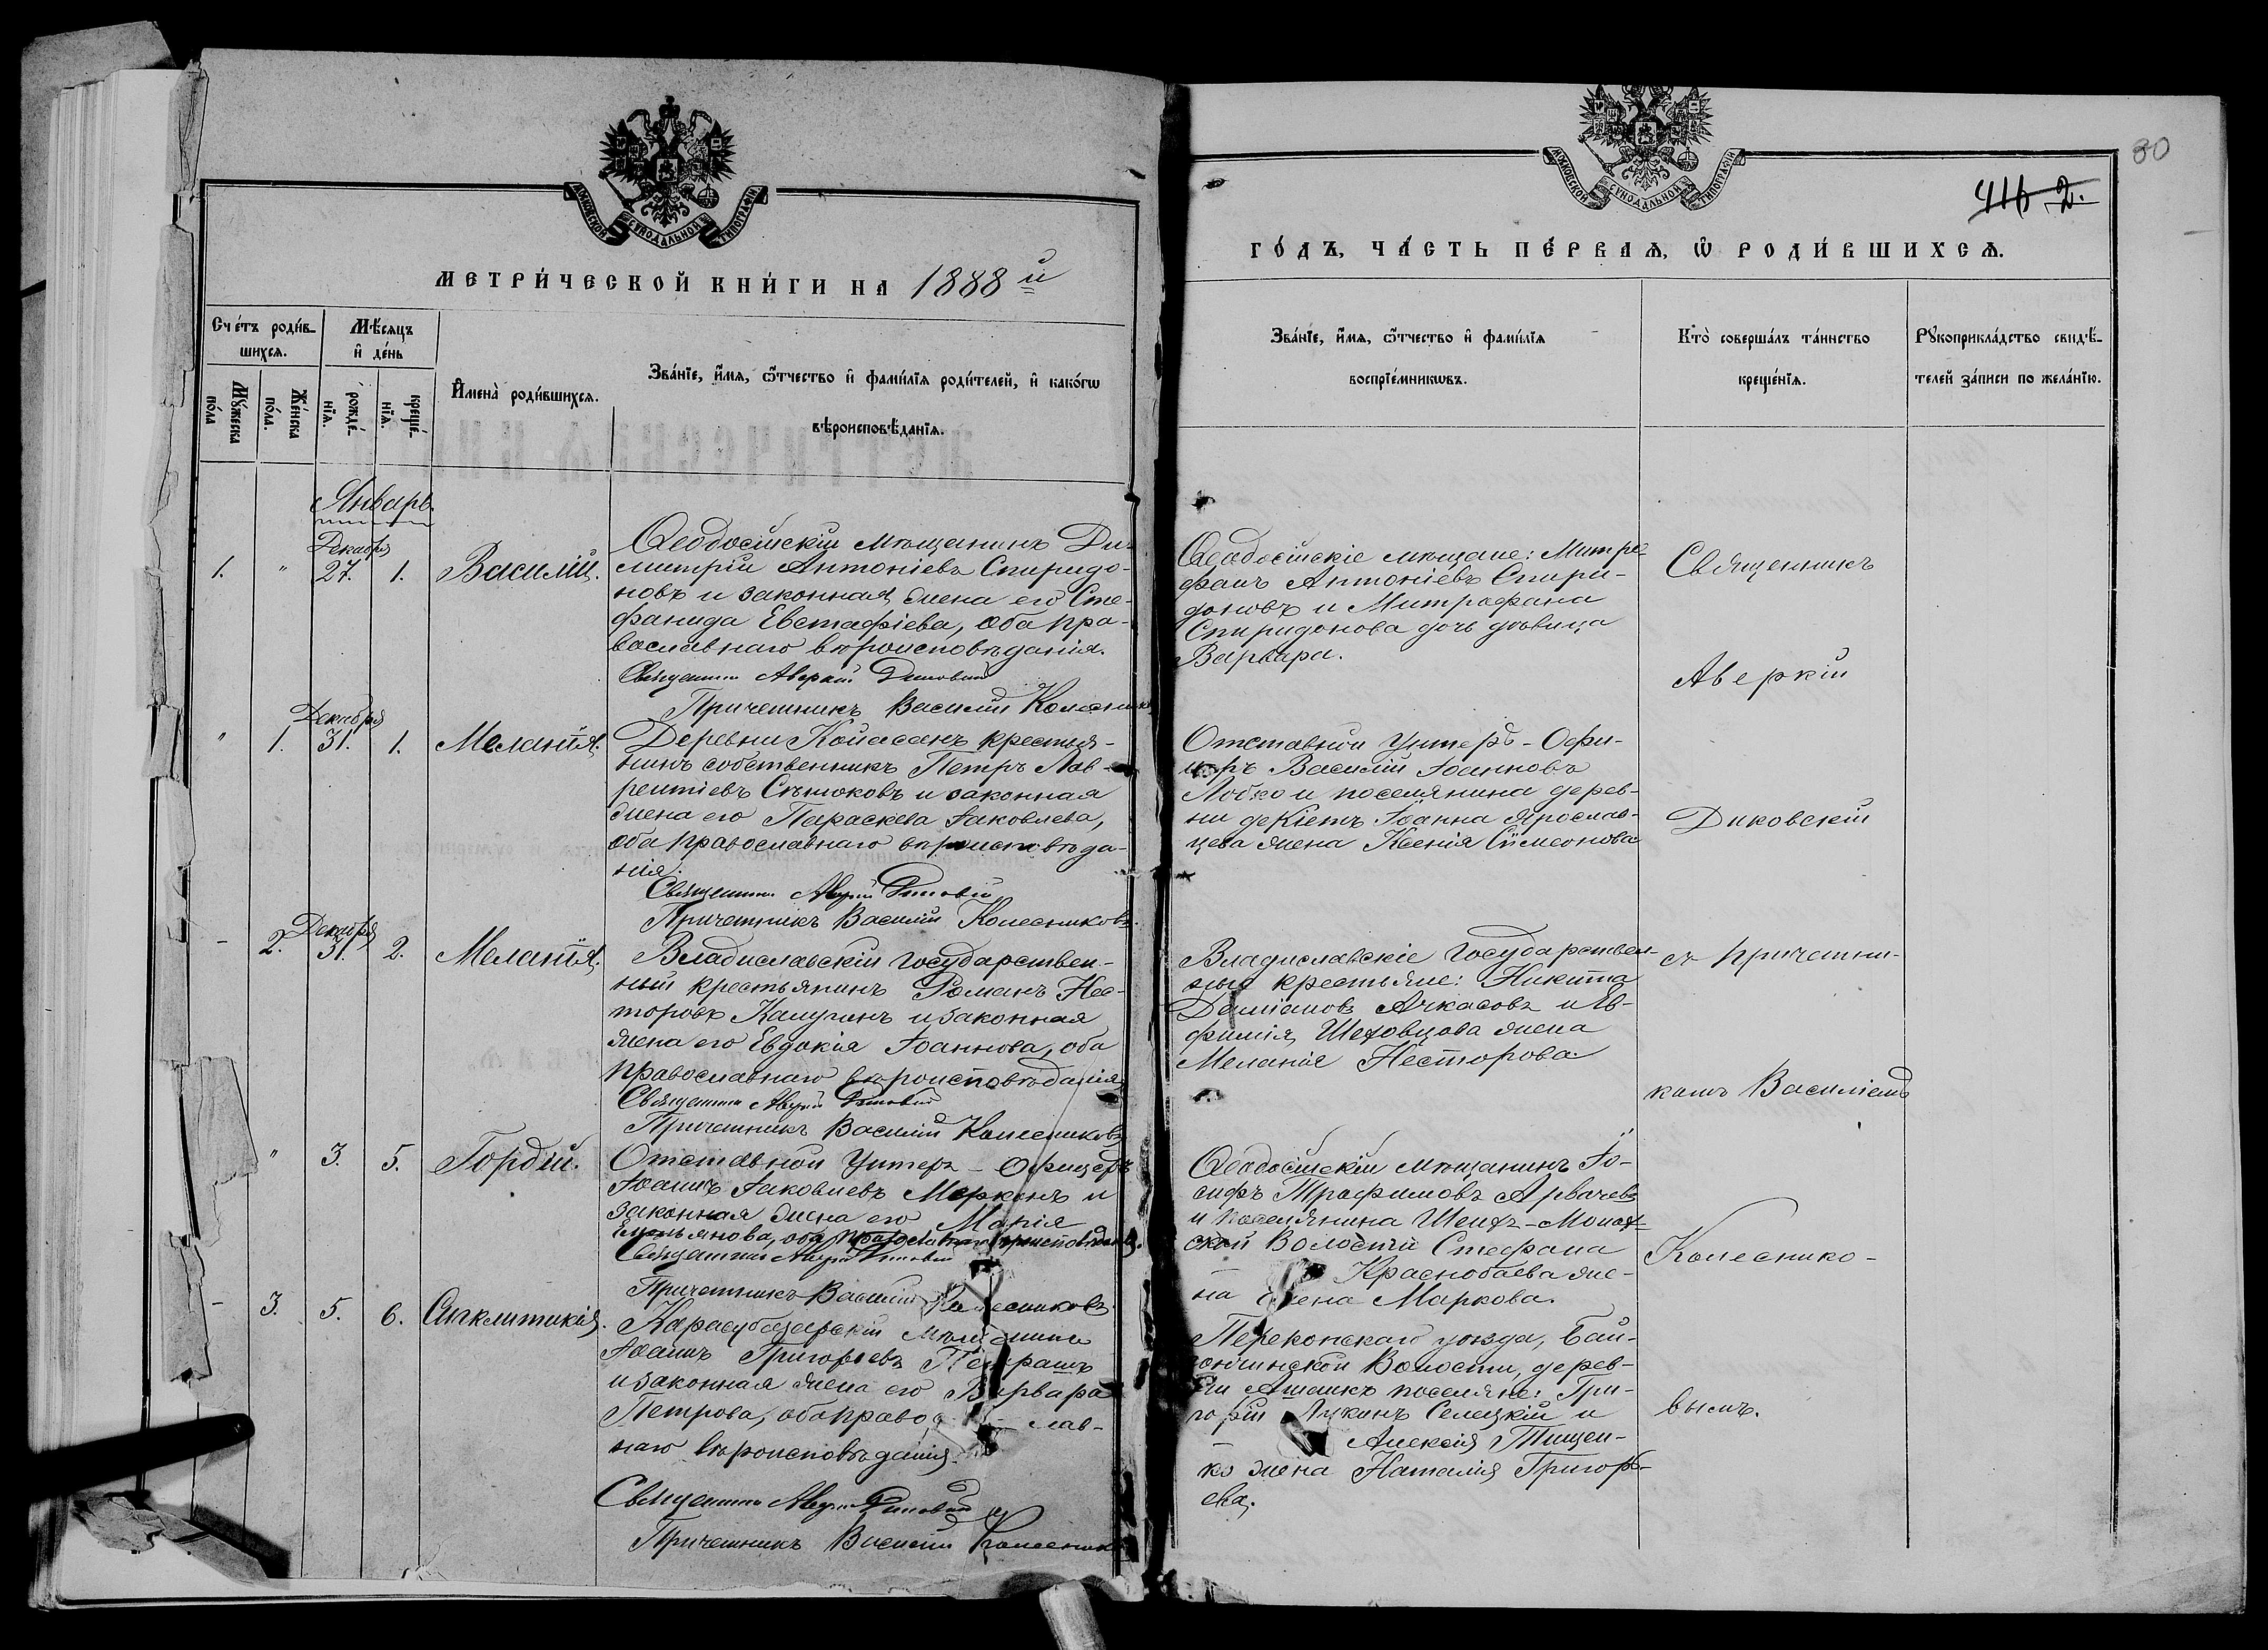 МОСКОВСКОЙ СѴНОДАЛЬНОЙ ТИПОГРАФІИ
МЕТРИ́ЧЕСКОЙ КНИ́ГИ НА 1888 й
Сче́тъ роди́в-
шихсѧ.
Мѣ́сѧцъ
и҆ де́нь
Мꙋ́жеска
по́ла
Же́нска
по́ла.
рожде́-
нїѧ.
креще́-
нїѧ.
И҆мена̀ роди́вшихсѧ.
Зва́нїе, и҆́мѧ, ѻ҆́тчество и҆ фами́лїѧ роди́телей, и҆ како́гѡ
вѣроисповѣ́данїѧ.
Январь.
Декабря
1. " 27. 1. Василій.
Ѳеодосійскій мѣщанинъ Ди-
митрій Антоніевъ Спиридо-
новъ и законная жена его Сте-
фанида Евстафіева, оба пра-
вославнаго вѣроисповѣданія.
Священникъ Аверкій Диковскій
Причетникъ Василій Колесников
Декабря
" 1. 31. 1. Меланія.
Деревни Койасанъ крестья-
нинъ собственникъ Петръ Лав-
рентіевъ и законная
жена его Параскева Іаковлева,
оба православнаго вѣроисповѣда-
нія.
Священникъ Аверкій Диковскій
Причетникъ Василій Колесниковъ.
Декабря
- 2. 31. 2. Меланія.
Владиславскій государствен-
ный крестьянинъ Романъ Нес-
торовъ Калугинъ и законная
жена его Евдокія Іоаннова, оба
православнаго вѣроисповѣданія
Священникъ Аверкій Диковскій
Причетникъ Василій Колесниковъ
" 3. 5. Гордій.
Отставной Унтеръ-Офицеръ
Іоаннъ Іаковлевъ и
законная жена его Марія
Емельянова, оба православнаго вѣроисповѣданія.
Священникъ Аверкій Диковскій
Причетникъ Василій Колесниковъ.
- 3. 5. 6. Сигклитикія.
Карасубазарскій мѣщанинъ
Іоаннъ Григорьевъ
и законная жена его Варвара
Петрова, оба правос лав-
наго вѣроисповѣданія.
Священникъ Аверкій Диковскій
Причетникъ Василій Колесников
80
416 2.
МОСКОВСКОЙ СѴНОДАЛЬНОЙ ТИПОГРАФІИ
ГО́ДЪ, ЧА́СТЬ ПЕ́РВАѦ, Ѡ҆ РОДИ́ВШИХСѦ.
Зва́нїе, и҆́мѧ, ѻ҆́тчество и҆ фами́лїѧ
воспрїе́мникѡвъ.
Кто̀ соверша́лъ та́инство
креще́нїѧ.
Рꙋкоприкла́дство свидѣ́-
телей за́писи по жела́нїю.
Ѳеодосійскіе мѣщане: Митро-
фанъ Антоніевъ Спири-
доновъ и Митрофана
Спиридонова дочь дѣвица
Варвара.
Отставной Унтеръ-Офи-
церъ Василій Іоанновъ
Лобко и поселянина дерев-
ни Іоанна Ярослав-
цева жена Ксенія Сѵмеонова
Владиславскіе государствен-
ные крестьяне: Никита
Даміановъ Ачкасовъ и Ев-
фимія Шеховцова жена
Меланія Несторова.
Ѳеодосійскій мѣщанинъ Іо-
сифъ Трофимовъ
и поселянина Шейхъ-Монах-
ской Волости Стефана
Краснобаева же-
на Елена Маркова.
Перекопскаго уѣзда,
Волости, дерев-
ни поселяне: Гри-
горій Лукинъ Селецкій и
Алексія Тищен-
ко жена Наталія Григорь-
ева.
Священникъ
Аверкій
Диковскій
съ причетни-
комъ Василіемъ
Колеснико-
вымъ.